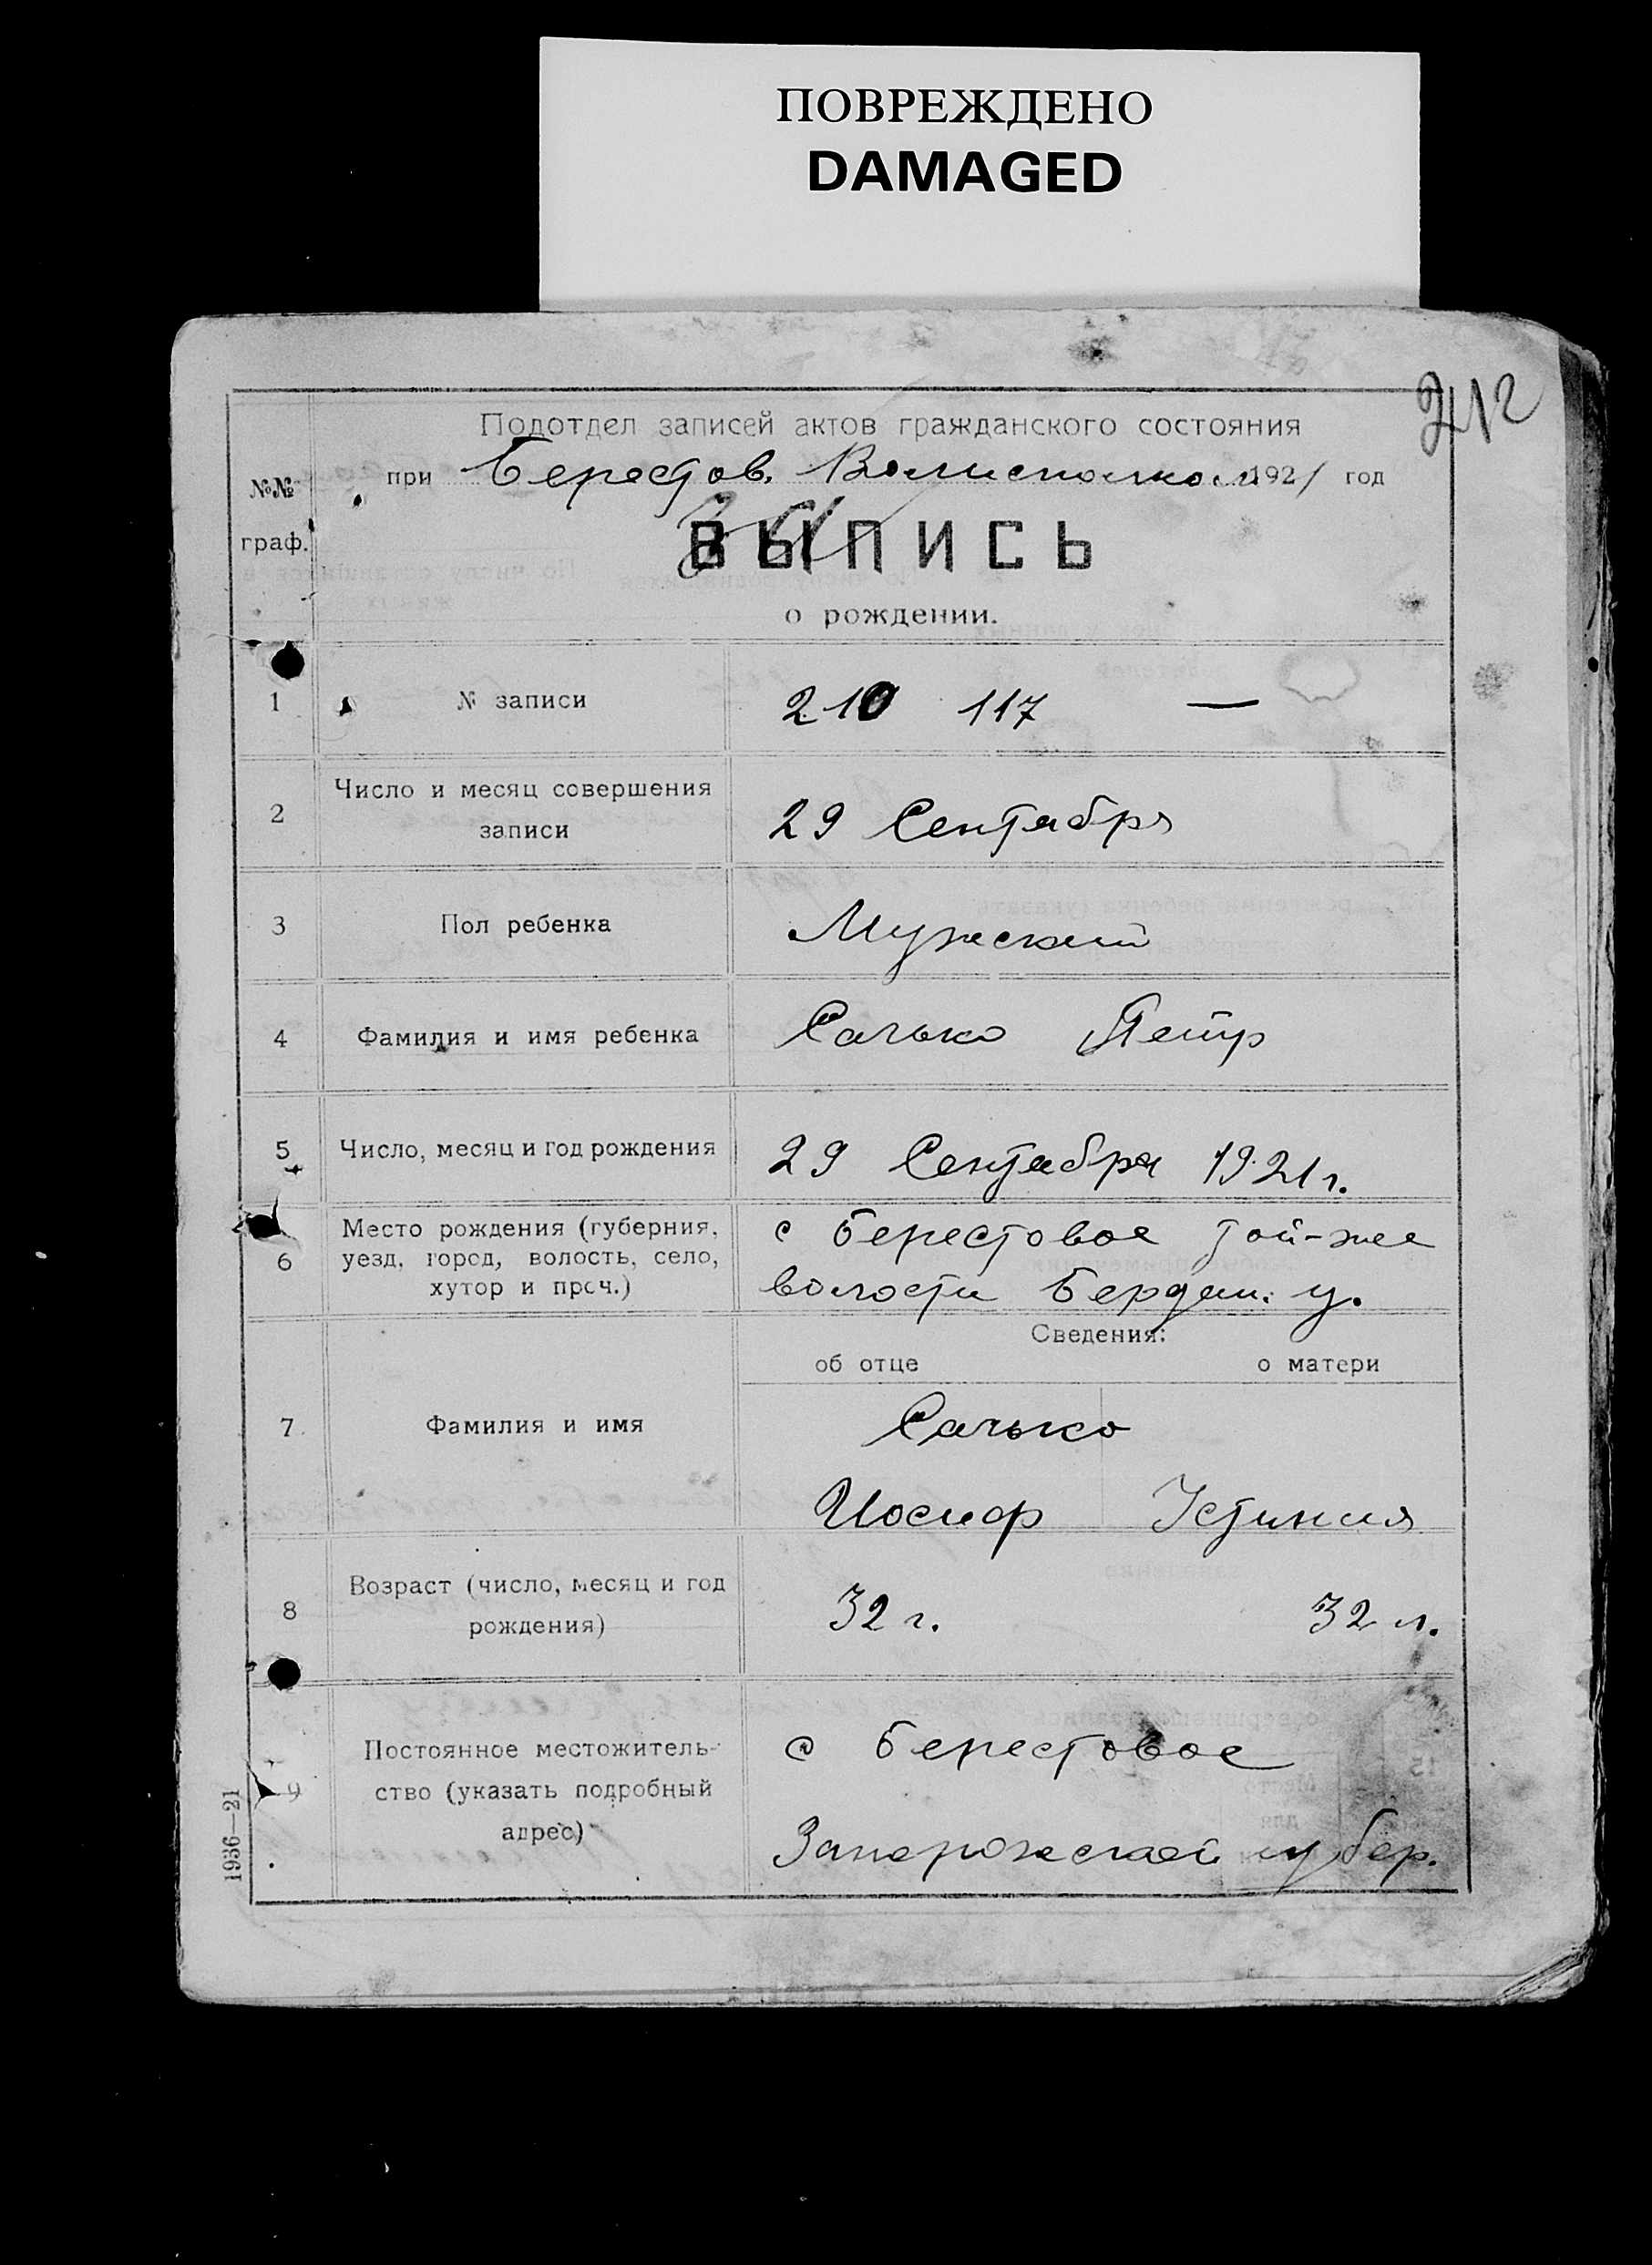 ПОВРЕЖДЕНО
DAMAGED
212
Подотдел записей актов гражданского состояния
при Берестов. Волисполкоме 1921 год
№№ граф.
ВЫПИСЬ
о рождении.
1 № записи 210 117 —
2 Число и месяц совершения записи 29 Сентября
3 Пол ребенка Мужеский
4 Фамилия и имя ребенка Сачько Петр
5 Число, месяц и год рождения 29 Сентября 1921 г.
6 Место рождения (губерния, уезд, город, волость, село, хутор и проч.) с Берестовое той-же
волости Бердян. у.
Сведения:
об отце о матери
7 Фамилия и имя Сачько
Иосиф Устиния
8 Возраст (число, месяц и год рождения) 32 г. 32 л.
9 Постоянное местожитель-
ство (указать подробный
адрес) с Берестовое
Запорожской губер.
1936—21